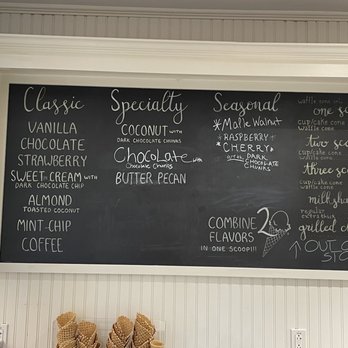 Classic
VANILLA
CHOCOLATE
STRAWBERRY
SWEET CREAM WITH
DARK CHOCOLATE CHIP
ALMOND
TOASTED COCONUT
MINT-CHIP
COFFEE
Specialty
COCONUT WITH
DARK CHOCOLATE CHUNKS
CHOCOLATE with
Chocolate Chunks
BUTTER PECAN
Seasonal
*Maple Walnut
*RASPBERRY
*CHERRY
WITH DARK
CHOCOLATE
CHUNKS
COMBINE 2
FLAVORS
IN ONE SCOOP!!!
one s
cup/cake cone
waffle cone
two sc
cup/cake cone
waffle cone
three sc
cup/cake cone
waffle cone
milk sh
regular
extra thick
grilled c
↑OUT O
STO